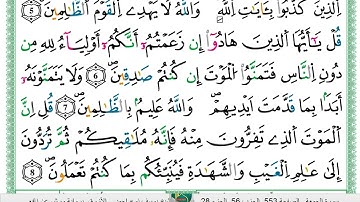 الَّذِينَ كَذَّبُوا بِـَٔايَٰتِ اللَّهِ وَاللَّهُ لَا يَهْدِے الْقَوْمَ الظَّٰلِمِينَ ٥
قُلْ يَٰٓأَيُّهَا الَّذِينَ هَادُوٓا إِن زَعَمْتُمُۥٓ أَنَّكُمُۥٓ أَوْلِيَآءُ لِلَّهِ مِن
دُونِ النَّاسِ فَتَمَنَّوُا الْمَوْتَ إِن كُنتُمْ صَٰدِقِينَ ٦ وَلَا يَتَمَنَّوْنَهُۥٓ
أَبَدًۢا بِمَا قَدَّمَتْ أَيْدِيهِمْ وَاللَّهُ عَلِيمٌۢ بِالظَّٰلِمِينَ ٧ قُلْ إِنَّ
الْمَوْتَ الَّذِے تَفِرُّونَ مِنْهُ فَإِنَّهُۥ مُلَٰقِيكُمْ ثُمَّ تُرَدُّونَ
إِلَىٰ عَٰلِمِ الْغَيْبِ وَالشَّهَٰدَةِ فَيُنَبِّئُكُم بِمَا كُنتُمْ تَعْمَلُونَ ٨
سورة الجمعة - الصفحة 553 - الحزب 56 - الجزء 28